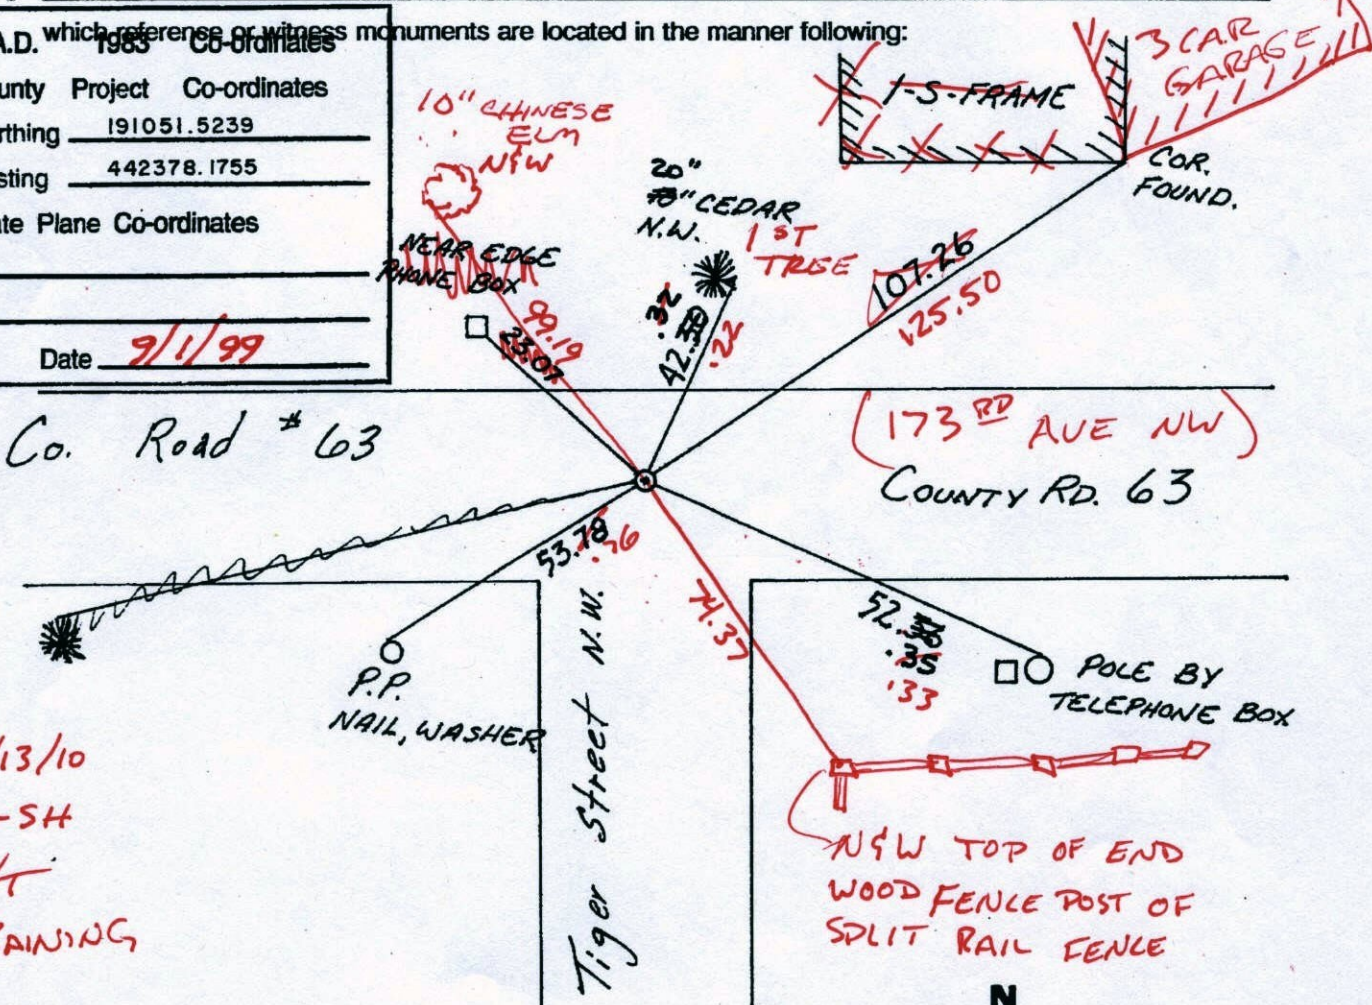 which reference or witness monuments are located in the manner following:
A.D. 1983 Co-ordinates
unty Project Co-ordinates
rthing 191051.5239
sting 442378.1755
ate Plane Co-ordinates
Date 9/1/99
10" CHINESE
ELM
N&W
NEAR EDGE
PHONE BOX
99.19
23.07
20"
" CEDAR
N.W.
1 ST
TREE
.32
42.50
.22
1-S-FRAME
3 CAR
GARAGE
COR.
FOUND.
107.26
125.50
Co. Road # 63
(173RD AVE NW)
COUNTY RD. 63
53.78
.76
74.37
52.36
.35
.33
P.P.
NAIL, WASHER
POLE BY
TELEPHONE BOX
Tiger Street N.W.
N&W TOP OF END
WOOD FENCE POST OF
SPLIT RAIL FENCE
/13/10
-SH
/T
AINING
N